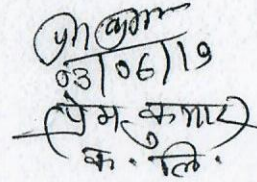 03/06/19
(प्रेम कुमार)
क. लि.